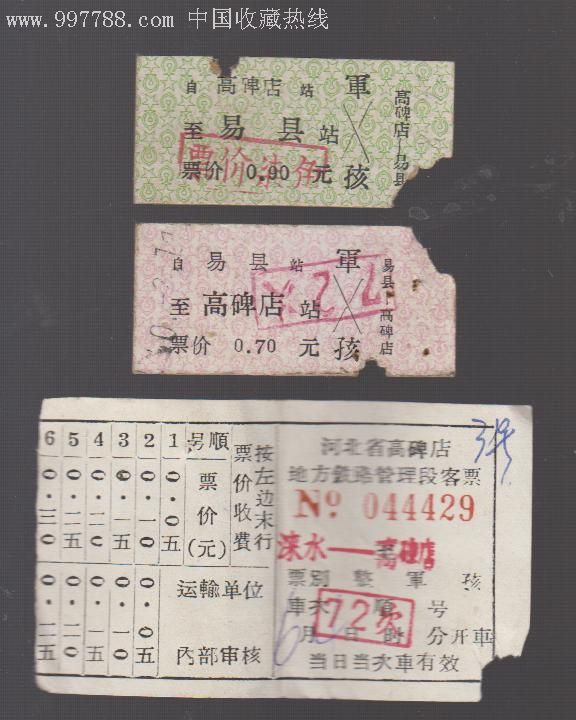 www.997788.com 中国收藏热线
自 高碑店 站 軍
至 易县 站
票价 0.90 元 孩
高碑店—易县
票价柒角
自 易县 站 軍
至 高碑店 站
票价 0.70 元 孩
易县—高碑店
河北省高碑店
地方鉄路管理段客票
Nº 044429
涞水——高碑店
票别 整 軍 孩
車次 順 号
72次
月 日 时 分开車
当日当次車有效
按左边末行
票价收费
順号
票价(元)
运输单位
内部审核
1 0.05
2 0.10
3 0.15
4 0.20
5 0.25
6 0.30
0.05
0.10
0.15
0.20
0.25